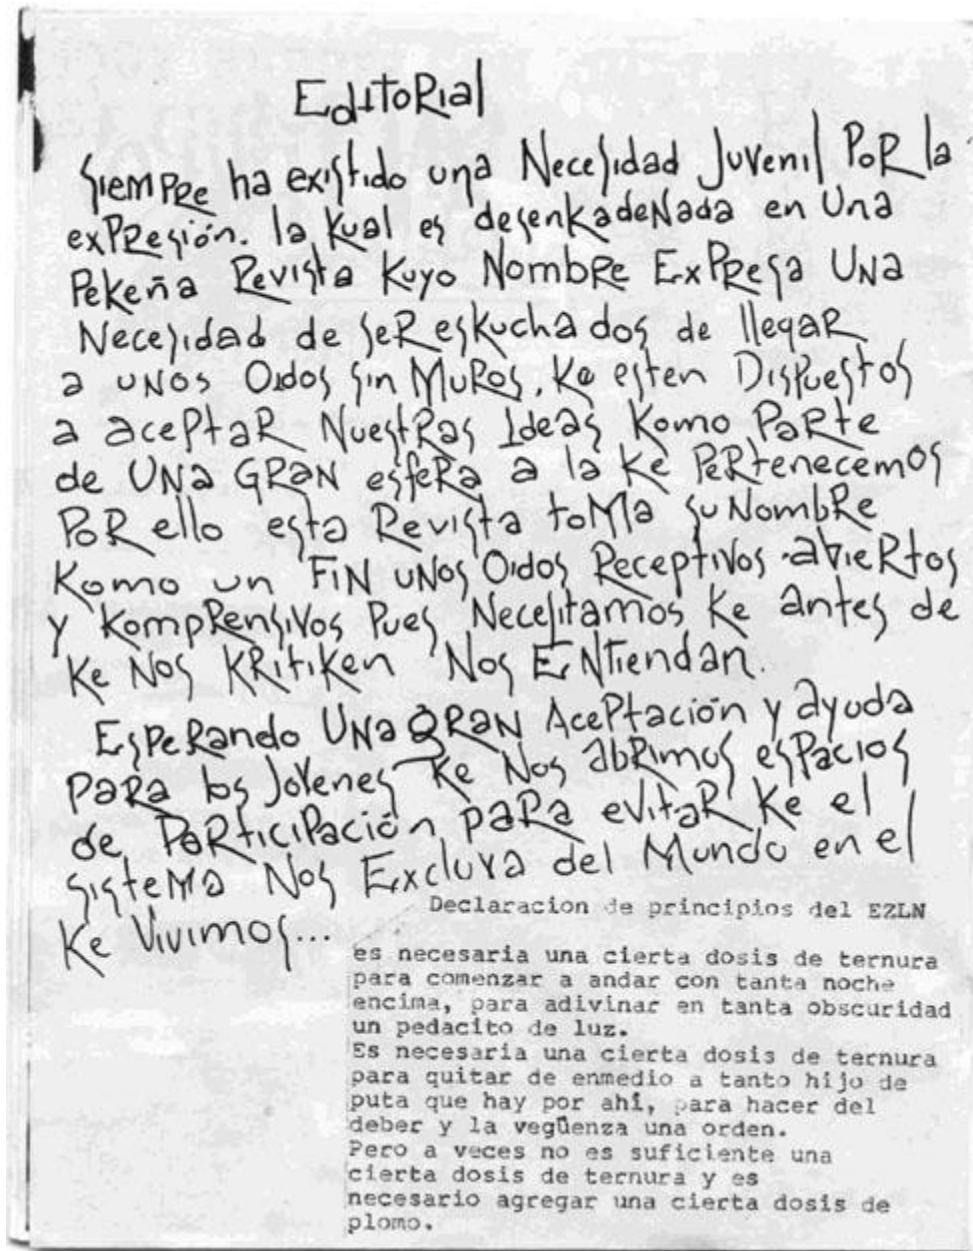 Editorial
Siempre ha existido una Necesidad Juvenil PoR la
exPResión. la Kual es desenKadeNada en Una
PeKeña Revista Kuyo NombRe ExPResa UNa
Necesidad de seR esKuchados de llegaR
a uNos Oidos sin MuRos, Ke esten DisPuestos
a acePtaR NuestRas Ideas Komo PaRte
de UNa GRaN esfeRa a la Ke PeRtenecemos
PoR ello esta Revista toMa su NombRe
Komo un FiN uNos Oidos Receptivos abieRtos
y KompRensivos Pues Necesitamos Ke antes de
Ke Nos KRitiKen Nos ENtiendan.
EsPeRando UNa gRaN AcePtación y ayuda
PaRa los Jovenes Ke Nos abRimos esPacios
de PaRticiPación paRa evitaR Ke el
sisteMa Nos Excluya del Mundo en el
Ke Vivimos...
Declaracion de principios del EZLN
es necesaria una cierta dosis de ternura
para comenzar a andar con tanta noche
encima, para adivinar en tanta obscuridad
un pedacito de luz.
Es necesaria una cierta dosis de ternura
para quitar de enmedio a tanto hijo de
puta que hay por ahí, para hacer del
deber y la vegüenza una orden.
Pero a veces no es suficiente una
cierta dosis de ternura y es
necesario agregar una cierta dosis de
plomo.